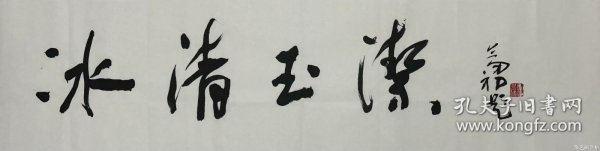 冰清玉潔
孔夫子旧書網
www.kongfz.com